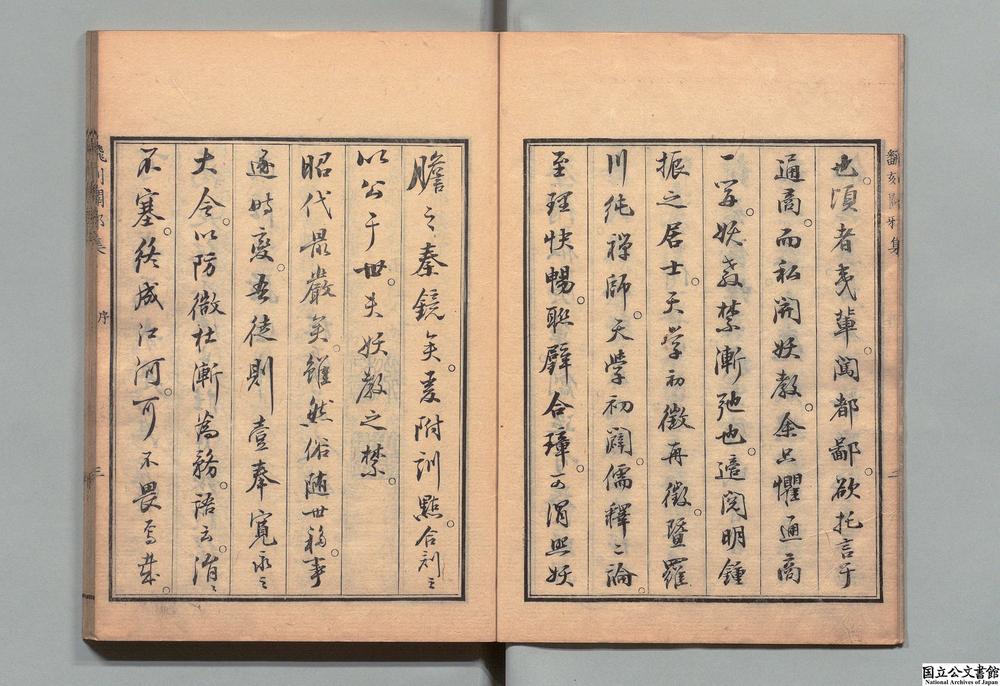 翻刻闢邪集
也。頃者夷輩。闖都鄙。欲托言于
通商。而私開妖教。余只懼通商
一笑妖教禁漸弛也。適閲明鍾
振之居士。天学初徴再徴。曁羅
川純禅師。天学初闢。儒釋之論
至理快暢。聯璧合璋。可謂照妖
膽之秦鏡矣。爰附訓點。合刻之
以公于世。夫妖教之禁。
昭代最嚴矣。雖然俗随世移。事
逐時變。吾徒則壹奉寛永之
大令。以防微杜漸為務。語云。涓〻
不塞。終成江河。可不畏焉哉。
翻刻闢邪集
序
三
国立公文書館
National Archives of Japan